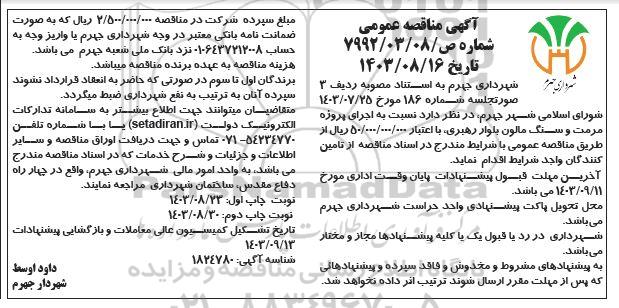 آگهی مناقصه عمومی
شماره ص/۷۹۹۲/۰۳/۰۸
تاریخ ۱۴۰۳/۰۸/۱۶
شهرداری جهرم
شهرداری جهرم به استناد مصوبه ردیف ۳
صورتجلسه شماره ۱۸۶ مورخ ۱۴۰۳/۰۷/۲۵
شورای اسلامی شهر جهرم، در نظر دارد نسبت به اجرای پروژه
مرمت و سنگ مالون بلوار رهبری، با اعتبار ۵۰/۰۰۰/۰۰۰/۰۰۰ ریال از
طریق مناقصه عمومی با شرایط مندرج در اسناد مناقصه از تامین
کنندگان واجد شرایط اقدام نماید.
آخرین مهلت قبول پیشنهادات پایان وقت اداری مورخ
۱۴۰۳/۰۹/۱۱ می باشد.
محل تحویل پاکت پیشنهادی واحد حراست شهرداری جهرم
می‌باشد.
شهرداری در رد یا قبول یک یا کلیه پیشنهادها مجاز و مختار
می‌باشد.
به پیشنهادهای مشروط و مخدوش و فاقد سپرده و پیشنهادهائی
که پس از مهلت مقرر ارسال شوند ترتیب اثر داده نخواهد شد.
مبلغ سپرده شرکت در مناقصه ۲/۵۰۰/۰۰۰/۰۰۰ ریال که به صورت
ضمانت نامه بانکی معتبر در وجه شهرداری جهرم یا واریز وجه به
حساب ۰۱-۶۴۳۷۷۱۲۰۰۸ نزد بانک ملی شعبه جهرم می باشد.
هزینه مناقصه به عهده برنده مناقصه میباشد.
برندگان اول تا سوم در صورتی که حاضر به انعقاد قرارداد نشوند
سپرده آنان به ترتیب به نفع شهرداری ضبط میگردد.
متقاضیان میتوانند جهت اطلاع بیشتر به سامانه تدارکات
الکترونیک دولت (setadiran.ir) یا با شماره تلفن
۰۷۱-۵۴۲۳۴۷۷۰ تماس و جهت دریافت اوراق مناقصه و سایر
اطلاعات و جزئیات و شرح خدمات که در اسناد مناقصه مندرج
می باشد، به واحد امور مالی شهرداری جهرم، واقع در چهار راه
دفاع مقدس، ساختمان شهرداری مراجعه نمایند.
نوبت چاپ اول: ۱۴۰۳/۰۸/۲۳
نوبت چاپ دوم: ۱۴۰۳/۰۸/۳۰
تاریخ تشکیل کمیسیون عالی معاملات و بازگشایی پیشنهادات
۱۴۰۳/۰۹/۱۳
شناسه آگهی: ۱۸۲۴۷۸۰
داود اوسط
شهردار جهرم